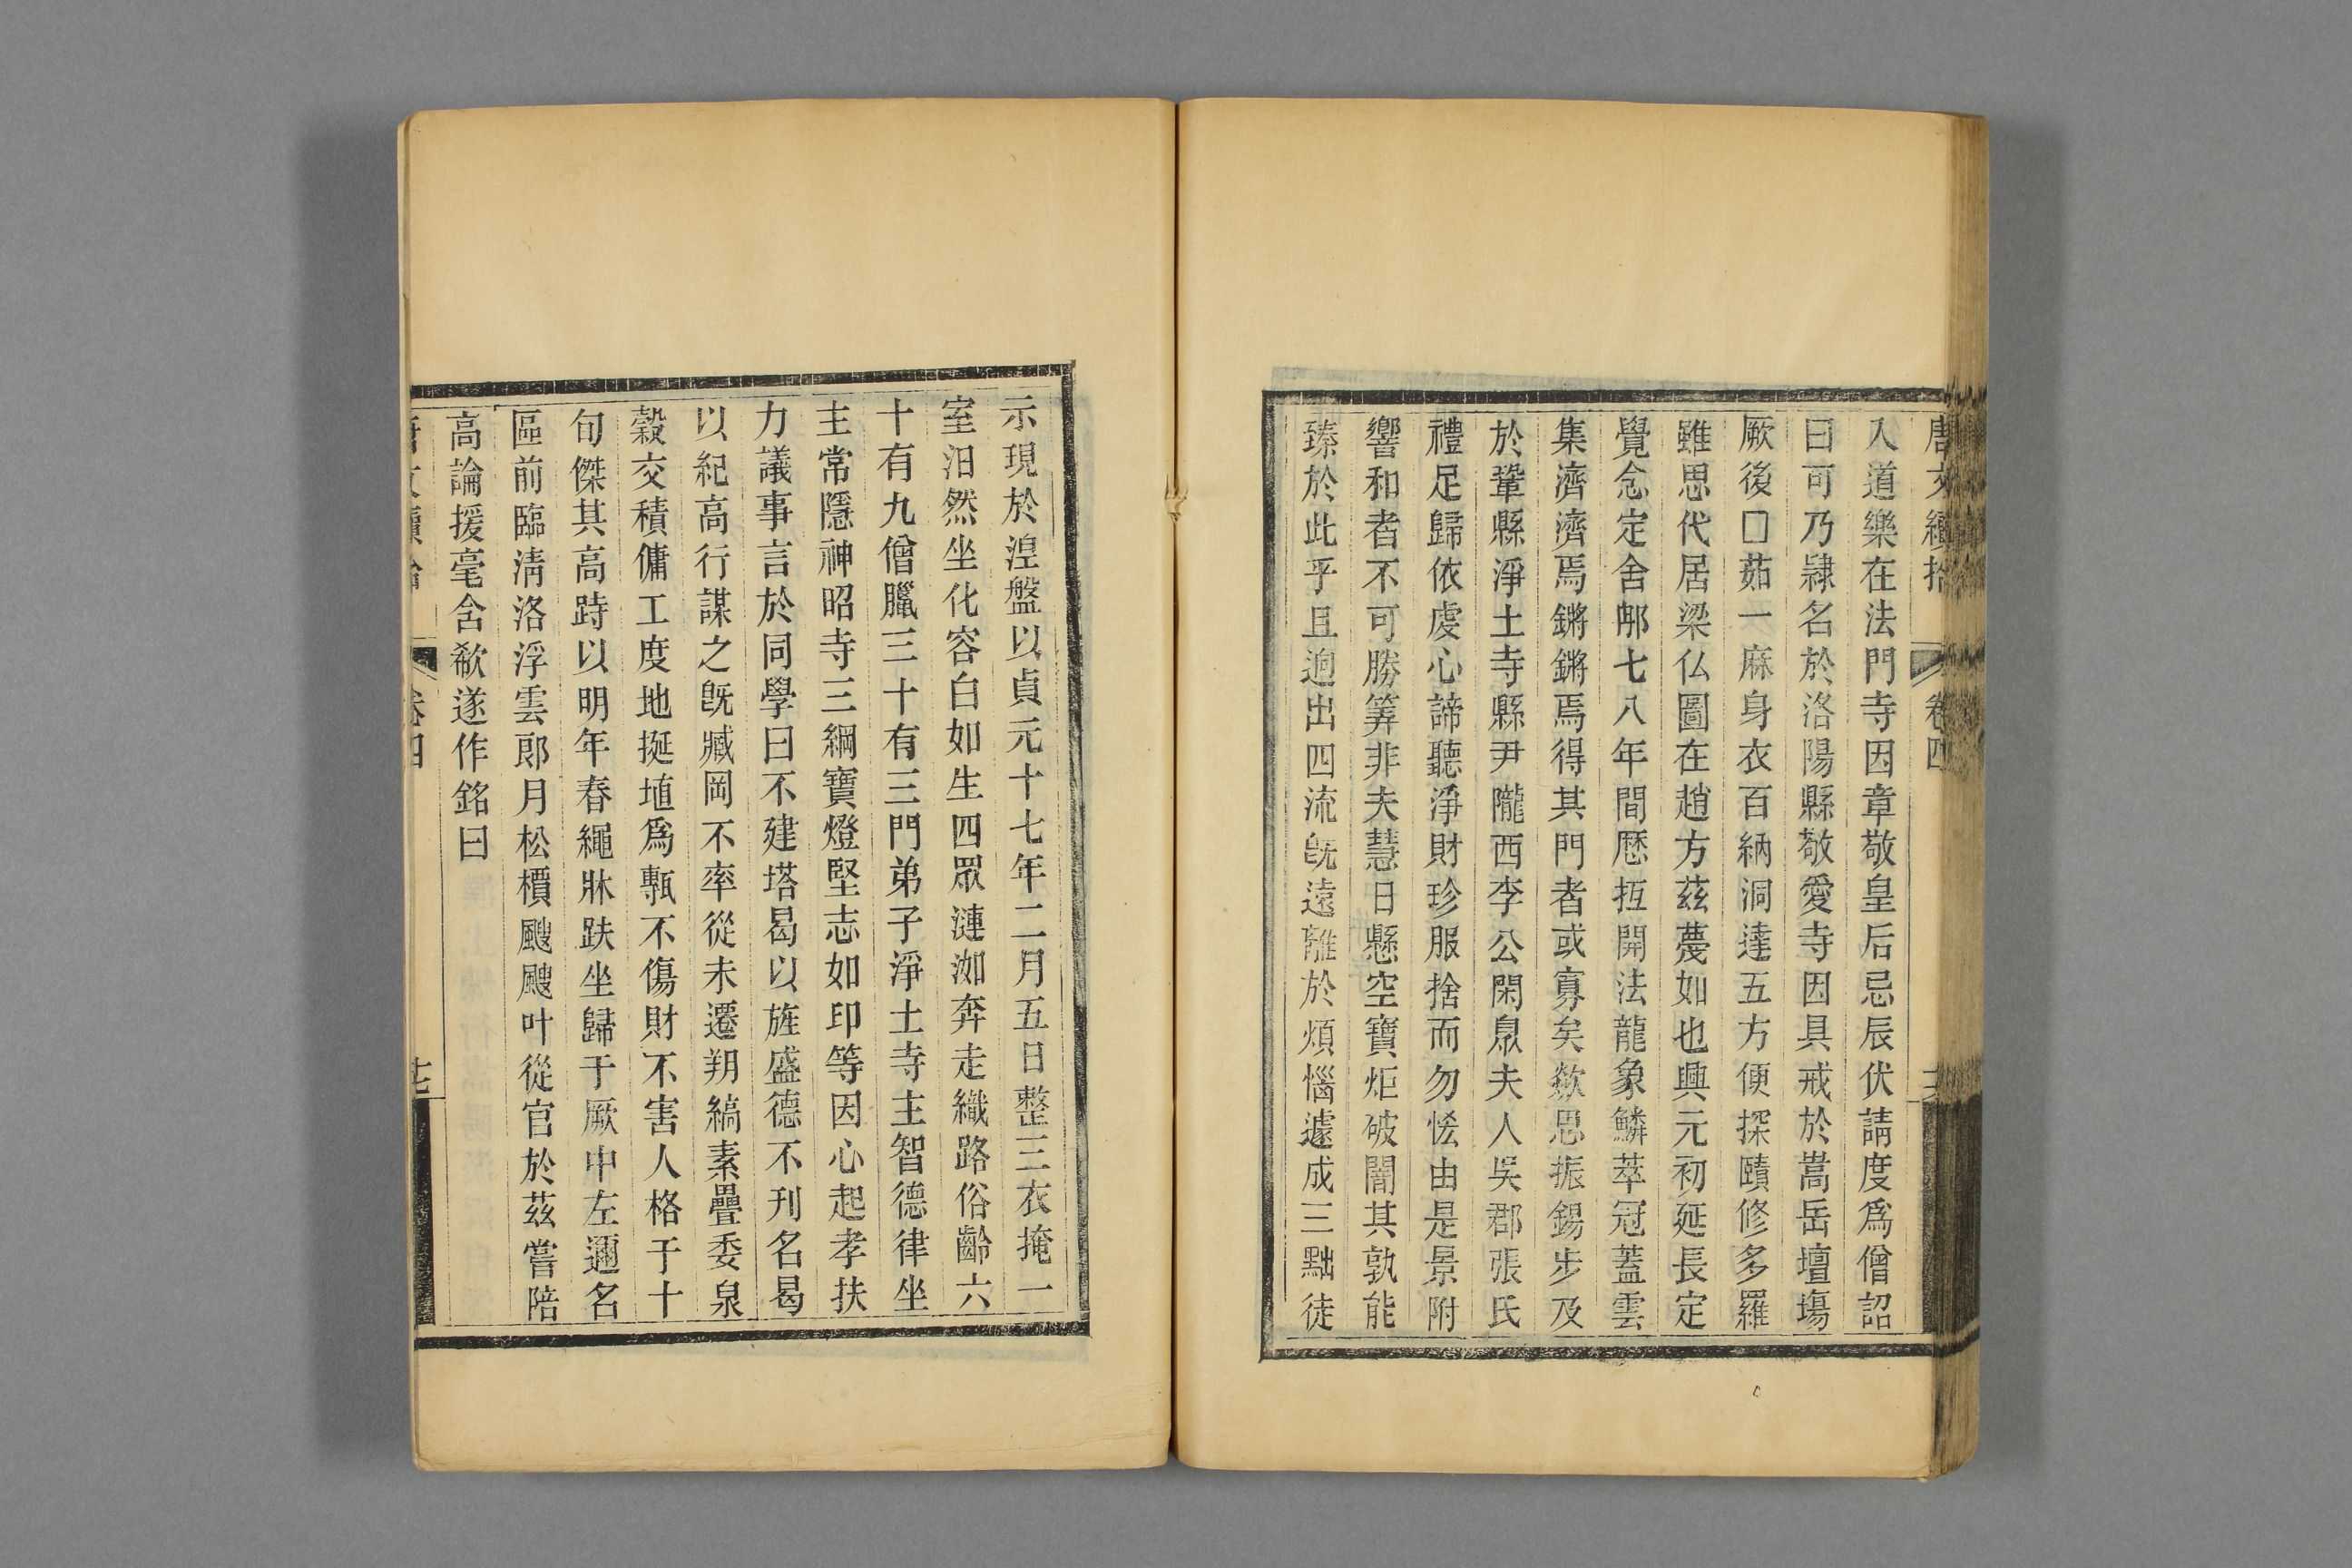 唐文續拾 卷四
入道樂在法門寺因章敬皇后忌辰伏請度爲僧詔
曰可乃隸名於洛陽縣敬愛寺因具戒於嵩岳壇塲
厥後□茹一麻身衣百納洞達五方便探賾修多羅
雖思代居梁仏圖在趙方茲蔑如也興元初延長定
覺念定舍郍七八年間歴抂開法龍象鱗萃冠蓋雲
集濟濟焉鏘鏘焉得其門者或寡矣欻思振錫步及
於鞏縣淨土寺縣尹隴西李公閑泉夫人吳郡張氏
禮足歸依虔心諦聽淨財珍服捨而勿恡由是景附
響和者不可勝筭非夫慧日懸空寶炬破闇其孰能
臻於此乎且迥出四流旣遠離於煩惱遽成三黜徒
示現於湼盤以貞元十七年二月五日整三衣掩一
室汨然坐化容白如生四眾漣洳奔走織路俗齡六
十有九僧臘三十有三門弟子淨土寺主智德律坐
主常隱神昭寺三綱寶燈堅志如印等因心起孝扶
力議事言於同學曰不建塔曷以旌盛德不刊名曷
以紀高行謀之旣臧岡不率從未遷朔縞素疊委泉
穀交積傭工度地挻埴爲甎不傷財不害人格于十
旬傑其高跱以明年春繩牀趺坐歸于厥中左邇名
區前臨淸洛浮雲郎月松檟颼颼叶從官於茲嘗陪
高論援毫含欷遂作銘曰
卷四